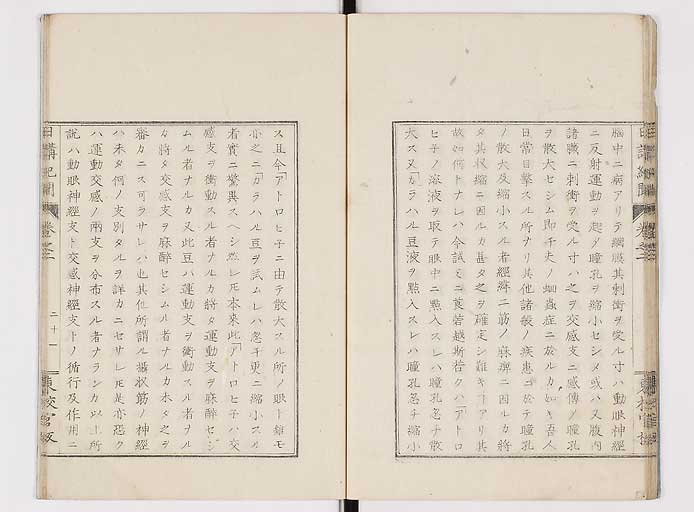 脳中ニ病アリテ網膜其刺衝ヲ受ル寸ハ動眼神経
ニ反射運動ヲ起シ瞳孔ヲ縮小セシメ或ハ又腹内
諸臓ニ刺衝ヲ受ル寸ハ之ヲ交感支ニ感傳ノ瞳孔
ヲ散大セシム即チ夫ノ蛔蟲症ニ於ルカ如キ吾人
日常目撃スル所ナリ其他諸般ノ疾患ニ於テ瞳孔
ノ散大及縮小スル者經痺ニ筋ノ麻痺ニ因ルカ將
タ其収縮ニ因ルカ甚タ之ヲ確定シ難キヿアリ其
故如何トナレハ今試ミニ莨菪越斯若クハ「アトロ
ヒ子ノ溶液ヲ取テ眼中ニ點入スレハ瞳孔忽チ散
大ス又「カラハル豆液ヲ點入スレハ瞳孔忽チ縮小
ス且今「アトロヒ子ニ由テ散大スル所ノ眼ト雖モ
亦之ニ「カラハル豆ヲ試ムレハ忽チ更ニ縮小スル
者實ニ驚異スヘシ然レ𪜈本来此「アトロヒ子ハ交
感支ヲ衝動スル者ナルカ將タ運動支ヲ麻醉セシ
ムル者ナルカ又此豆ハ運動支ヲ衝動スル者ナル
カ將タ交感支ヲ麻醉セシムル者ナルカ未タ之ヲ
審カニス可ラサレハ也其他所謂ル攝状筋ノ神経
ハ未タ何ノ支別タルヲ詳カニセサレ𪜈是亦恐ク
ハ運動交感ノ兩支ヲ分布スル者ナランカ以上所
説ハ動眼神經支ト交感神經支トノ循行及作用ニ
日講紀聞
巻之二
二十一